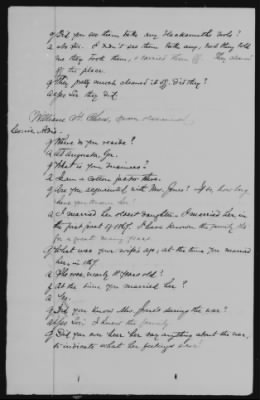 Q Did you see them take any blacksmith tools?
A No Sir. I didn't see them take any, but they told
me they took them, & carried them off. They cleaned
up the place.
Q They pretty much cleaned it up did they?
A Yes Sir they did.
William H. sworn & examined,
Q Where do you reside?
A At Augusta, Ga.
Q What is your business?
A I am a cotton
Q Are you acquainted with Mrs. Jones? If so, how long
have you known her?
A I married her oldest daughter. I married her in
the first part of 1867. I have known the family
for a great many years.
Q What was your wife's age, at the time you married
her, in 1867
A She was nearly 18 years old?
Q At the time you married her?
A Yes.
Q Did you know Mrs. Jones during the war?
A Yes Sir. I knew the family
Q Did you ever hear her say anything about the war,
to indicate what her feelings were?